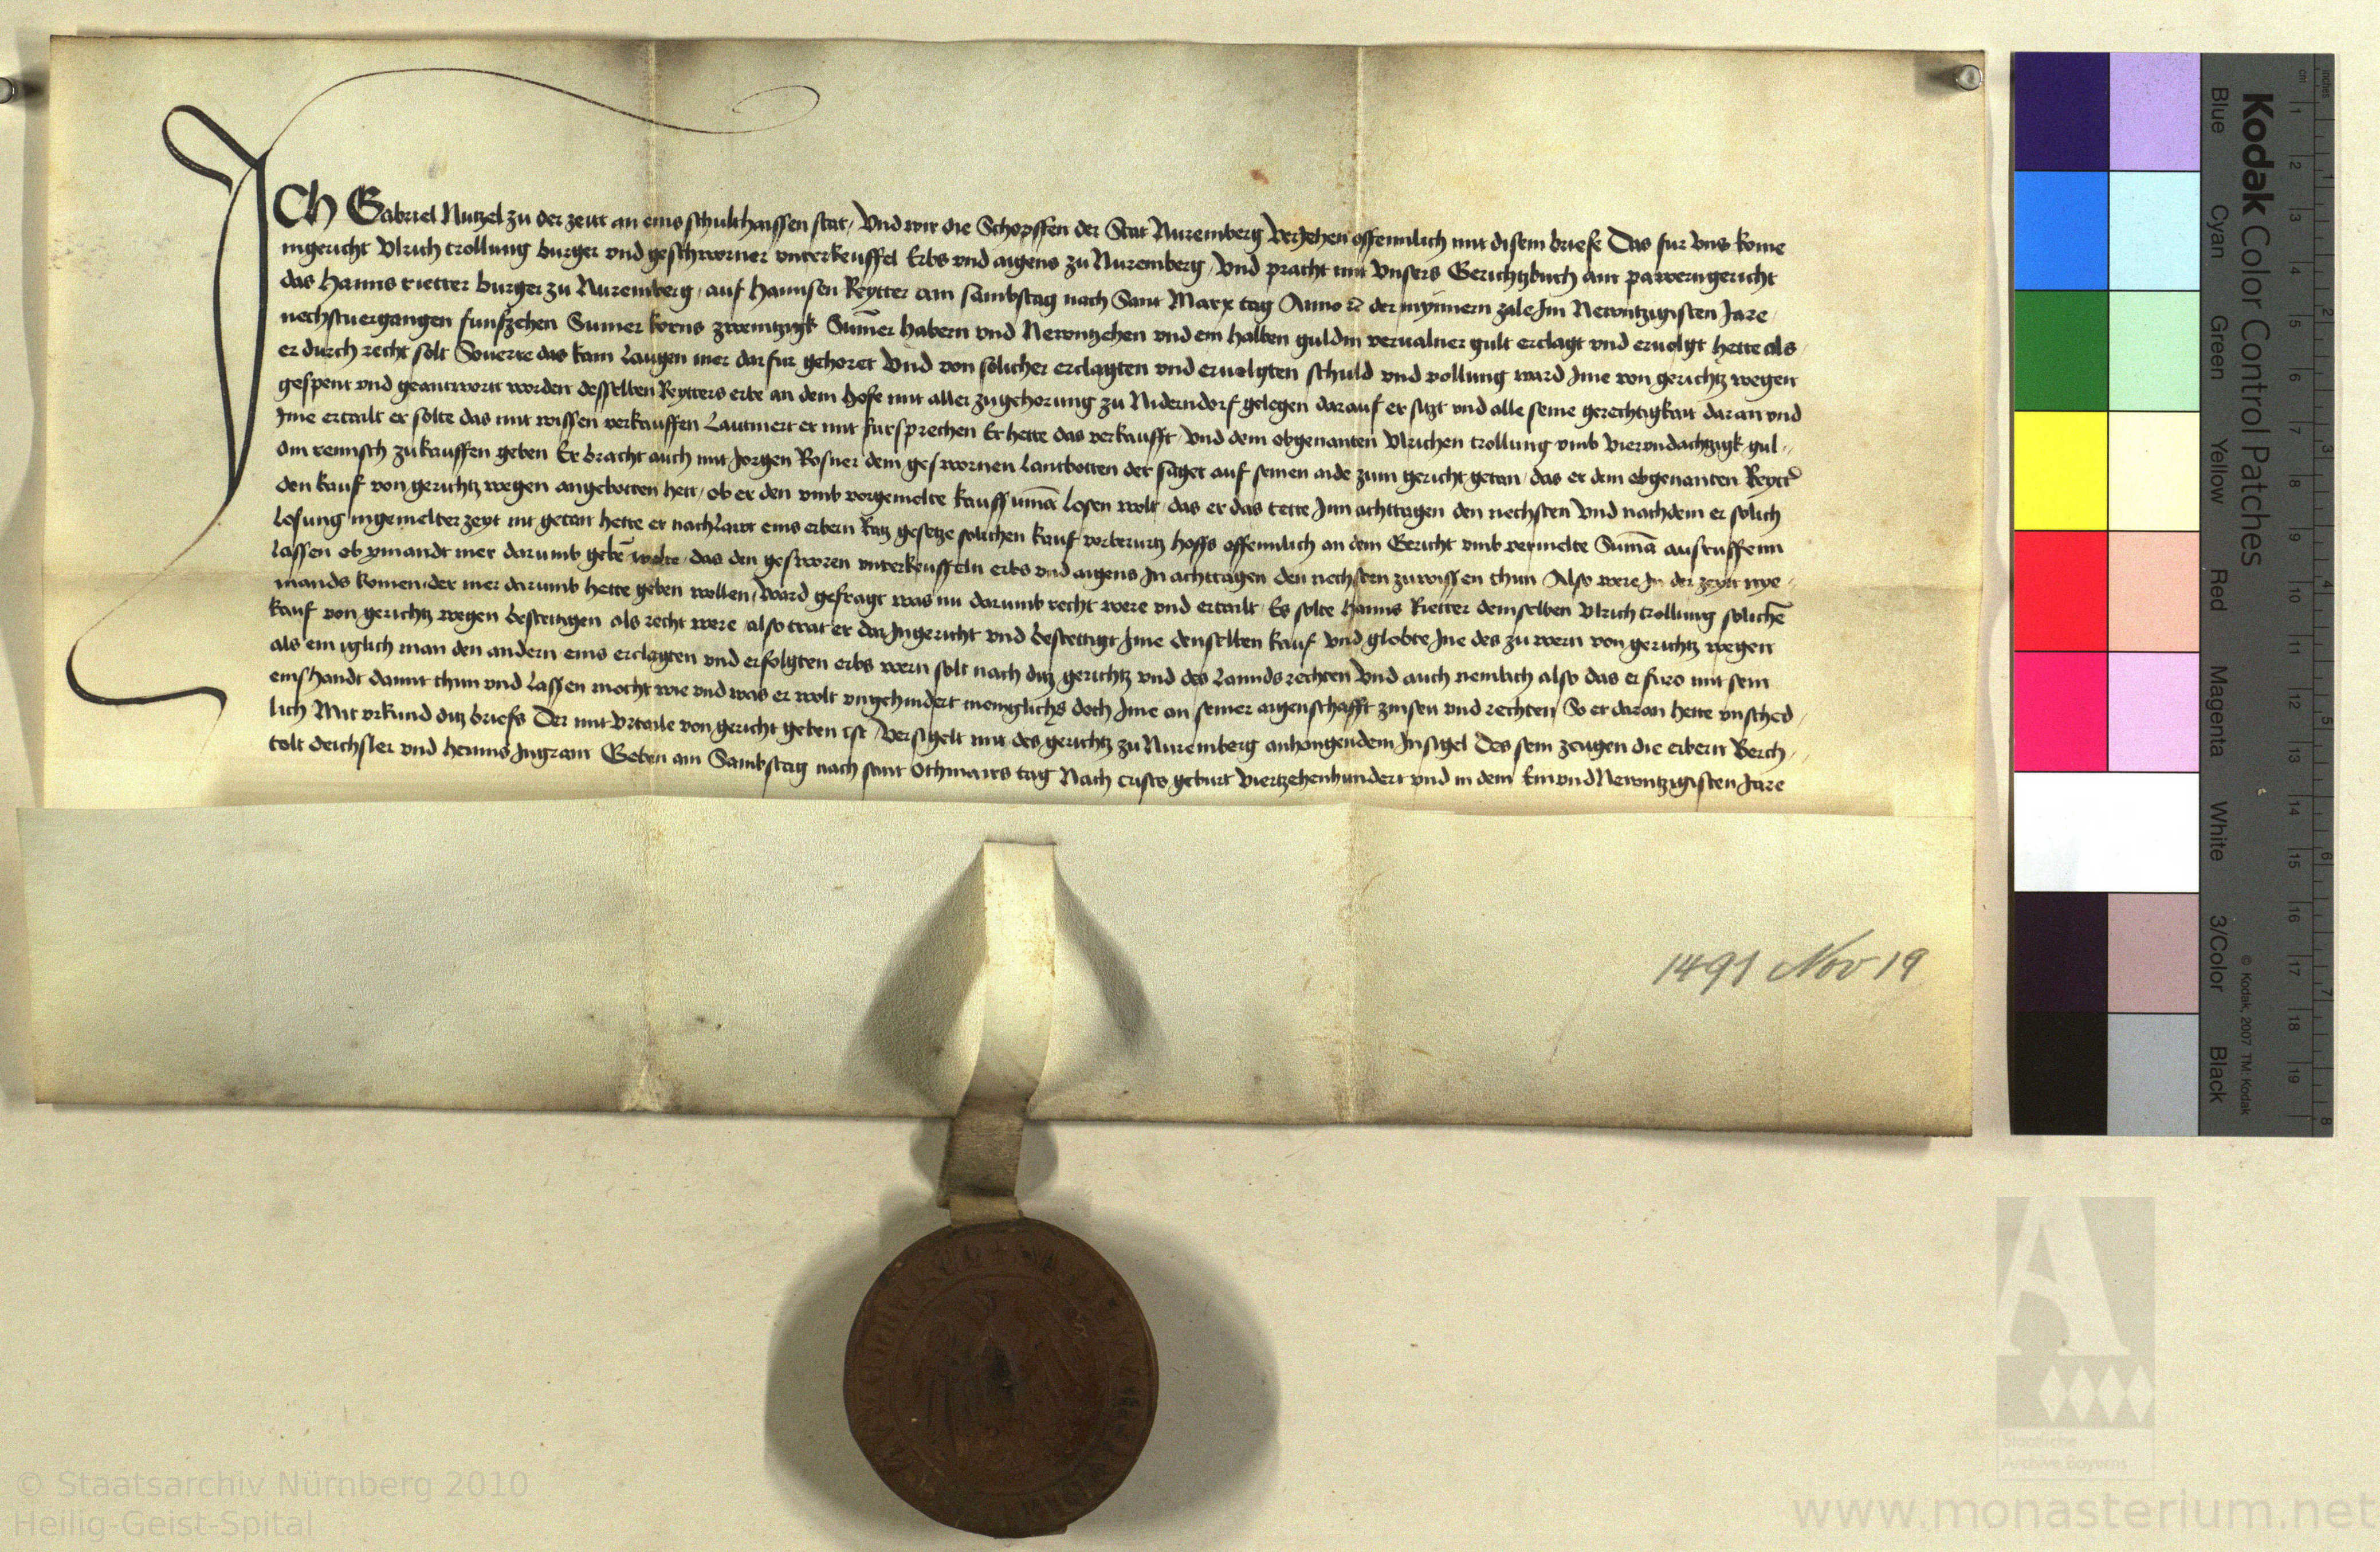 ICh Gabriel Nutzel zu der zeitt an eins schulthaissen stat, Vnd wir die Schopffen der Stat Nuremberg Verjehen offennlich mit disem briefe Das fur vns kome
ingericht Vlrich trollung burger vnd geschworner vnterkeuffel Erbs vnd aigens zu Nuremberg, Vnd pracht mit vnsers Gerichtzbuch am pawerngericht
das Hanns rietter burger zu Nuremberg, auf Hannsen Reytter am sambstag nach Sant Marx tag Anno der mynnern zale Im Newntzigisten Jare
nechstuergangen funfzehen Sumer korns zweintzigk Sumer habern vnd Newntzehen vnd ein halben guldin veruallner gult erclagt vnd eruolgt hette als
er durch recht solt Souerre das kain laugen mer darfur gehoret Vnd von solicher erclagten vnd eruolgten schuld vnd vollung ward Jme von gerichtz wegen
gespent vnd geantwort worden desselben Reytters erbe an dem hofe mit aller zugehorung zu Niderndorf gelegen darauf er sitzt vnd alle seine gerechtigkait daran vnd
Jme ertailt er solte das mit wissen verkauffen Lautmert er mit fursprechen Er hette das verkaufft, Vnd dem obgenanten Vlrichen trollung vmb Viervndachtzigk gul-
din reinisch zukauffen geben Er bracht auch mit Jorgen Rosner dem geswornen lantbotten der saget auf seinen aide zum gericht getan, das er dem obgenanten Reytter
den kauf von gerichtz wegen angebotten hett, ob er den vmb vorgemelte kauffsumā losen wolt, das er das tette Jnn achttagen den nechsten Vnd nachdem er solich
losung ingemelter zeyt nit getan hette er nach lawt eins erbern Ratz gesetze solichen kauf vorberurtz hoffs offennlich an dem Gericht vmb vermelte Sumā ausruffenn
lassen ob ymandt mer darumb gebē wolte, das den gesworen vnterkeuffeln erbs vnd aigens Jn achttagen den nechsten zuwissen thun Also were Jn der zeyt nye-
mands komen, der mer darumb hette geben wollen, Ward gefragt was nu darumb recht were vnd ertailt, Es solte Hanns Rietter demselben Vlrich trollung solichē
kauf von gerichtz wegen bestettigen als recht were, also trat er dar Jngericht vnd bestettigt Jme denselben kauf Vnd globte Jne des zu wern von gerichtz wegen
als ein iglich man den andern eins erclagten vnd erfolgten erbs wern solt nach ditz gerichtz vnd des Lannds rechten Vnd auch nemlich also das er furo mit sein
eins handt damit thun vnd lassen mocht wie vnd was er wolt vngehindert meniglichs doch Jme an seiner aigenschafft zinsen vnd rechten So er daran hette vnsched-
lich Mit vrkund ditz briefs Der mit Vrteile von gericht geben ist Versigelt mit des gerichtz zu Nuremberg anhangendem Jnsigel Des sein zeugen die erbern Berch-
tolt deichsler vnd henins Jngram Geben am Sambstag nach sant Othmars tag Nach cristi geburt Viertzehenhundert vnd in dem Einvnd Newntzigisten Jare
1491 Nov 19
Kodak Color Control Patches
Blue Cyan Green Yellow Red Magenta White 3/Color Black
© Kodak, 2007 TM: Kodak
inches
cm
1 2 3 4 5 6 7 8 9 10 11 12 13 14 15 16 17 18 19
1 2 3 4 5 6 7 8
Staatliche
Archive Bayerns
© Staatsarchiv Nürnberg 2010
Heilig-Geist-Spital
www.monasterium.net